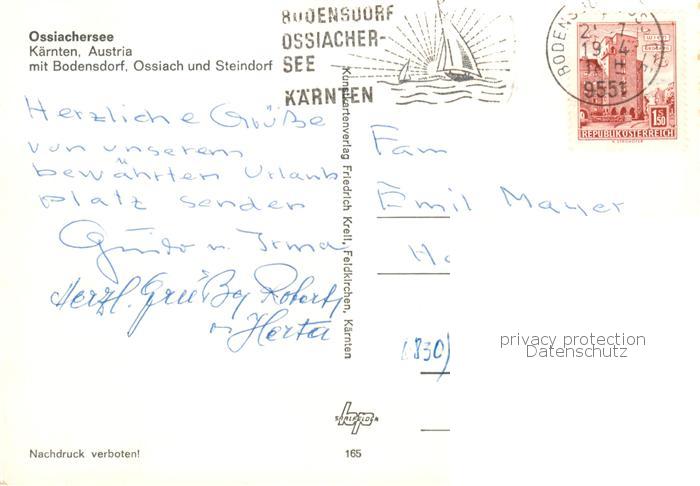 Ossiachersee
Kärnten, Austria
mit Bodensdorf, Ossiach und Steindorf
BODENSDORF
OSSIACHER-
SEE
KÄRNTEN
9551
1.50
REPUBLIK ÖSTERREICH
Herzliche Grüße
von unserem
bewährten Urlaubs
platz senden
Guido u. Irma
Herzl. Grüße Robert
u Herta
Kunstkartenverlag Friedrich Krell, Feldkirchen, Kärnten
Fam
Emil Mayer
(830)
privacy protection
Datenschutz
Nachdruck verboten!
165